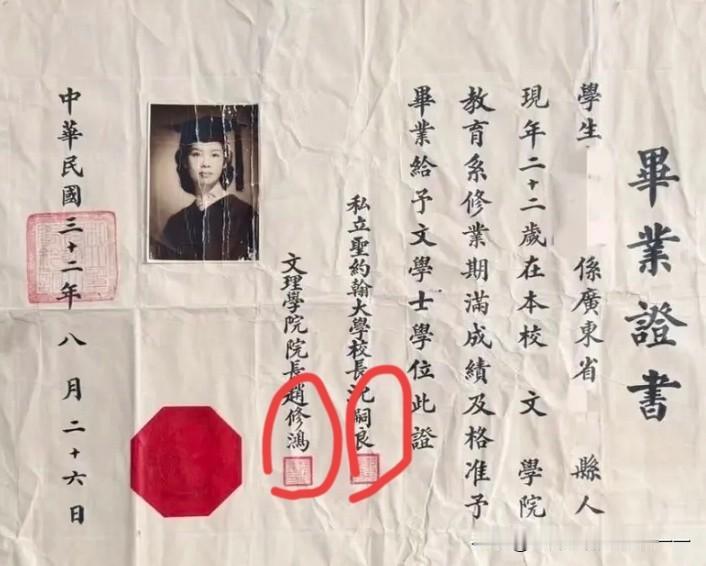 畢業證書
學生 係廣東省 縣人
現年二十二歲在本校 文 學院
教育系修業期滿成績及格准予
畢業給予文學士學位此證
私立聖約翰大學校長沈嗣良
文理學院院長趙修鴻
中華民國三十二年八月二十六日